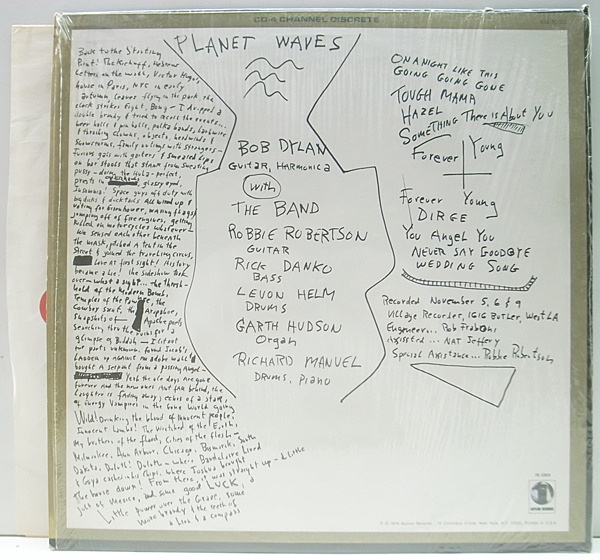 CD-4 CHANNEL DISCRETE
PLANET WAVES
Back to the Starting
Point! The Kickoff, Hebrew
Letters on the wall, Victor Hugo's
house in Paris, NYC in early
autumn, leaves flying in the park, the
clock strikes Eight, Bong— I dropped a
double brandy & tried to recall the events...
beer halls & pin balls, polka bands, barbwire
& thrashing clowns, objects, headwinds &
snowstorms, family outings with strangers—
Furious gals with garters & smeared lips
on bar stools that stank from sweating
pussy— doing the Hula— perfect,
priests in overhauls, glassy eyed,
Insomnia! Space guys off duty with
big dicks & ducktails All wired up &
voting for Eisenhower, waving flags &
jumping off of fire engines, getting
killed on motorcycles whatever—
We sensed each other beneath
the mask, pitched a tent in the
Street & joined the traveling circus,
love at first sight! History
became a lie! the sideshow took
over— what a sight... the thresh-
hold of the Modern Bomb,
Temples of the Pawnee, the
Cowboy Saint, the Arapahoe,
Snapshots of Apache poets
Searching thru the ruins for a
glimpse of Buddah— I lit out
for parts unknown, found Jacob's
Ladder up against an adobe wall &
bought a serpent from a passing Angel—
Yeah the ole days are gone
forever and the new ones Ant far behind, the
Laughter is fading away, echos of a star,
of Energy Vampires in the Gone World going
Wild! Drinking the blood of innocent people,
Innocent Lambs! The Wretched of the Earth,
My brothers of the flood, Cities of the flesh—
Milwaukee, Ann Arbor, Chicago, Bismarck, South
Dakota, Duluth! Duluth— where Baudelaire Lived
& Goya cashed in his Chips, where Joshua brought
the house down! From there, it was straight up— a Little
jolt of Mexico, and some good LUCK, a
Little power over the Grave, some
more brandy & the teeth of
a Lion & a compass
BOB DYLAN
GUITAR, HARMONICA
with
THE BAND
ROBBIE ROBERTSON
GUITAR
RICK DANKO
BASS
LEVON HELM
DRUMS
GARTH HUDSON
Organ
RICHARD MANUEL
DRUMS, piano
ON A NIGHT LIKE THIS
GOING GOING GONE
TOUGH MAMA
HAZEL
SOMETHING There is About You
Forever Young
Forever Young
DIRGE
You Angel You
NEVER SAY GOODBYE
WEDDING SONG
Recorded November 5, 6 & 9
Village Recorder, 1616 Butler, West LA
Engineer... Rob Fraboni
Assisted... NAT Jeffery
Special Assistance... Robbie Robertson